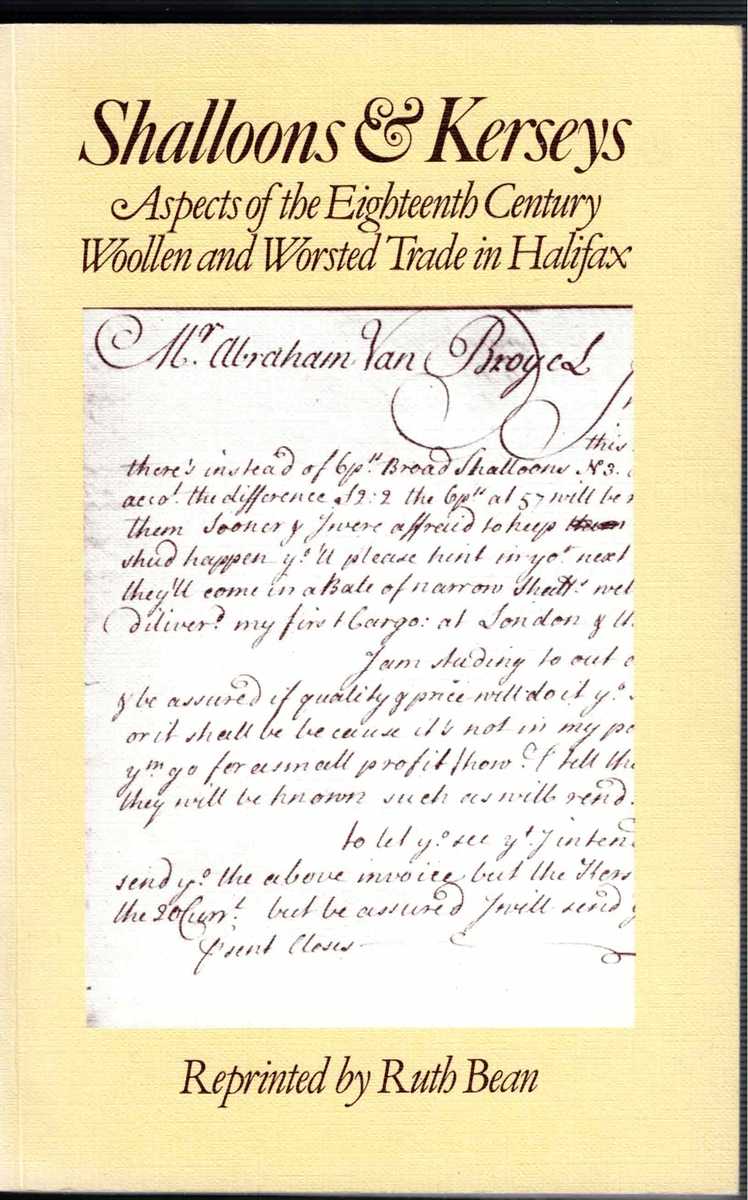 Shalloons & Kerseys
Aspects of the Eighteenth Century
Woollen and Worsted Trade in Halifax
Mr. Abraham Van Broyel
this
there's instead of 6ps. Broad Shalloons N3.
accot. the difference the 6ps at 57 will be
them Sooner & I were affraid to keep them
shud happen yo'll please hint in yor. next
they'll come in a Bale of narrow Shalls.
diliver'd my first Cargo: at London &
I am studing to out
& be assured if quality & price will do it yo.
or it shall be because it's not in my
ym go for a small profit I tell
they will be known such as will
to let yo. see yt. I inten
send yo. the above invoice but the
the 20 Currt. but be assured I will send
P'sent Closes
Reprinted by Ruth Bean